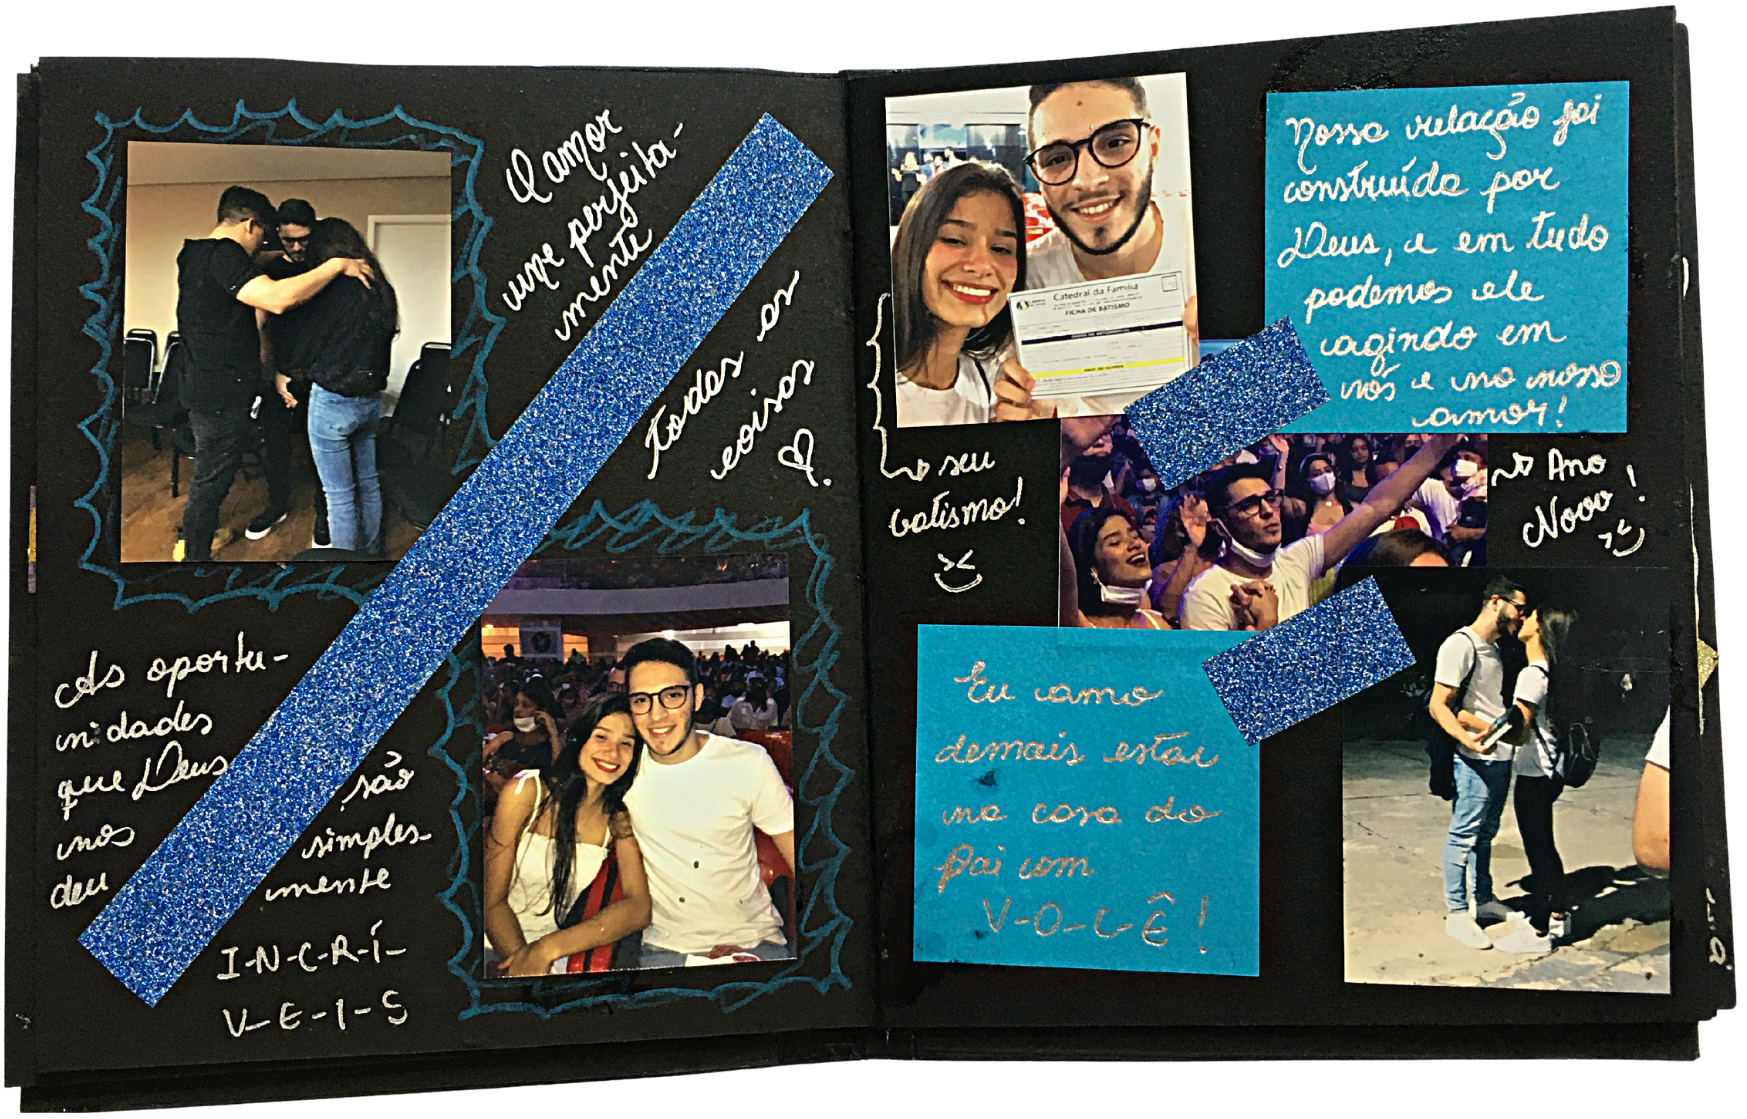 O amor
une perfeita-
mente
todas as
coisas
As oportu-
nidades
que Deus
nos
deu
são
simples-
mente
I-N-C-R-Í-
V-E-I-S
Catedral da Família
FICHA DE BATISMO
Nossa relação foi
construída por
Deus, e em tudo
podemos ele
agindo em
nós e no nosso
amor!
seu
batismo!
Ano
Novo!
Eu amo
demais estar
na casa do
Pai com
V-O-C-Ê!